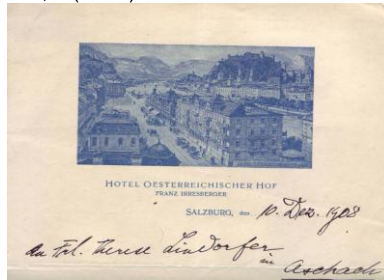 HOTEL OESTERREICHISCHER HOF
FRANZ IRRESBERGER
SALZBURG, den 10. Dez. 1908
An Frl. Therese Lindorfer
in
Aschach